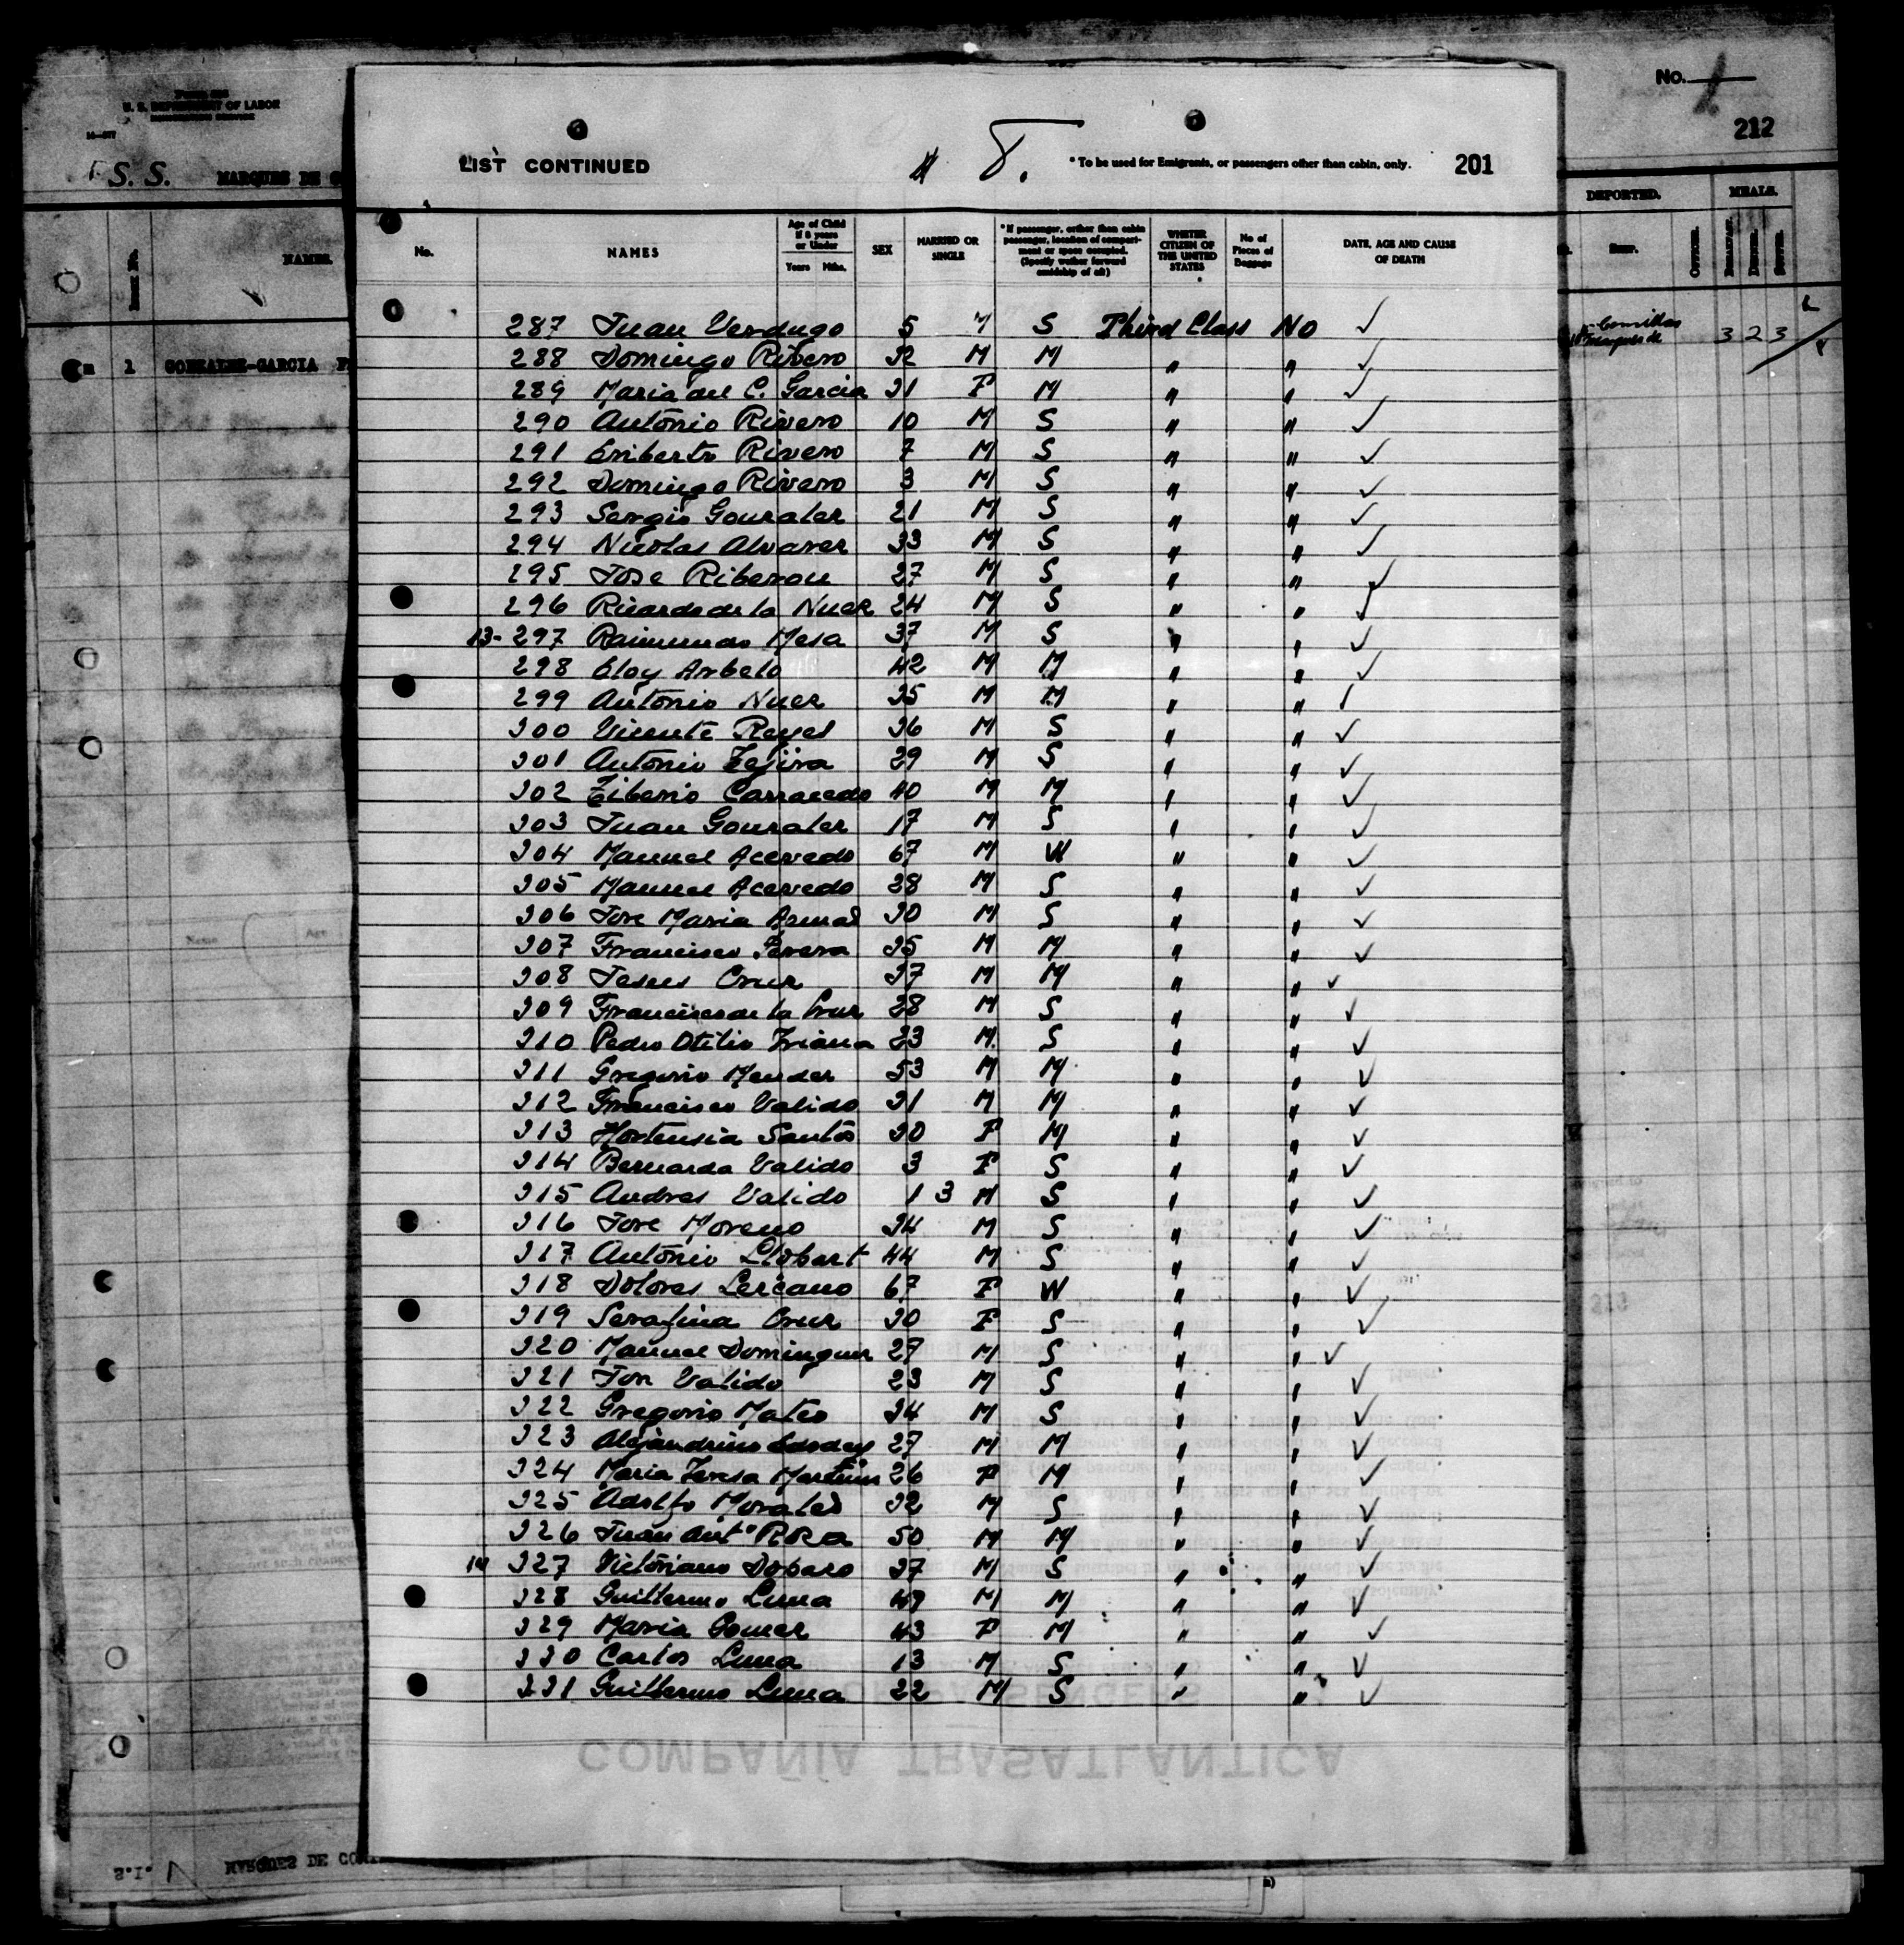 No. 1
212
U. S. DEPARTMENT OF LABOR
S. S. MARQUES DE
LIST CONTINUED
8.
* To be used for Emigrants, or passengers other than cabin, only.
201
DEPORTED.
MEALS.
No.
NAMES
Age of Child if 8 years or Under
Years Mths.
SEX
MARRIED OR SINGLE
* If passenger, orther than cabin passenger, location of compartment or space occupied. (Specify wether forward amidship of aft)
WHETER CITIZEN OF THE UNITED STATES
No of Pieces of Baggage
DATE, AGE AND CAUSE OF DEATH
NAMES.
BREAKFAST. DINNER. SUPPER.
1 GONZALEZ-GARCIA
3 2 3
287 Juan Verdugo 5 M S Third Class No ✓
288 Domingo Ribero 32 M M " " ✓
289 Maria del C. Garcia 31 F M " " ✓
290 Antonio Rivero 10 M S " " ✓
291 Eriberto Rivero 7 M S " " ✓
292 Domingo Rivero 3 M S " " ✓
293 Sergio Gonzalez 21 M S " " ✓
294 Nicolas Alvarez 33 M S " " ✓
295 Jose Riberon 27 M S " " ✓
296 Ricardo de la Nuez 24 M S " " ✓
13- 297 Raimundo Mesa 37 M S " " ✓
298 Eloy Arbelo 42 M M " " ✓
299 Antonio Nuez 35 M M " " ✓
300 Vicente Reyes 36 M S " " ✓
301 Antonio Tejira 29 M S " " ✓
302 Tiberio Carracedo 40 M M " " ✓
303 Juan Gonzalez 17 M S " " ✓
304 Manuel Acevedo 67 M W " " ✓
305 Manuel Acevedo 28 M S " " ✓
306 Jose Maria 30 M S " " ✓
307 Francisco Perera 35 M M " " ✓
308 Jesus Cruz 37 M M " " ✓
309 Francisco de la Cruz 28 M S " " ✓
310 Pedro Otilio Triana 23 M S " " ✓
311 Gregorio Mendez 53 M M " " ✓
312 Francisco Valido 31 M M " " ✓
313 Hortensia Santos 30 F M " " ✓
314 Bernarda Valido 3 F S " " ✓
315 Andres Valido 1 3 M S " " ✓
316 Jose Moreno 34 M S " " ✓
317 Antonio Llobart 44 M S " " ✓
318 Dolores Lercano 67 F W " " ✓
319 Serafina Cruz 30 F S " " ✓
320 Manuel Dominguez 27 M S " " ✓
321 Jose Valido 23 M S " " ✓
322 Gregorio Mateo 34 M S " " ✓
323 Alejandrino 27 M M " " ✓
324 Maria Teresa Martin 26 F M " " ✓
325 Adolfo Morales 32 M S " " ✓
326 Juan Antº Roza 50 M M " " ✓
14 327 Victoriano Dobaro 37 M S " " ✓
328 Guillermo Luna 49 M M " " ✓
329 Maria Gomez 43 F M " " ✓
330 Carlos Luna 13 M S " " ✓
331 Guillermo Luna 22 M S " " ✓
COMPAÑIA TRASATLANTICA
S.I. MARQUES DE